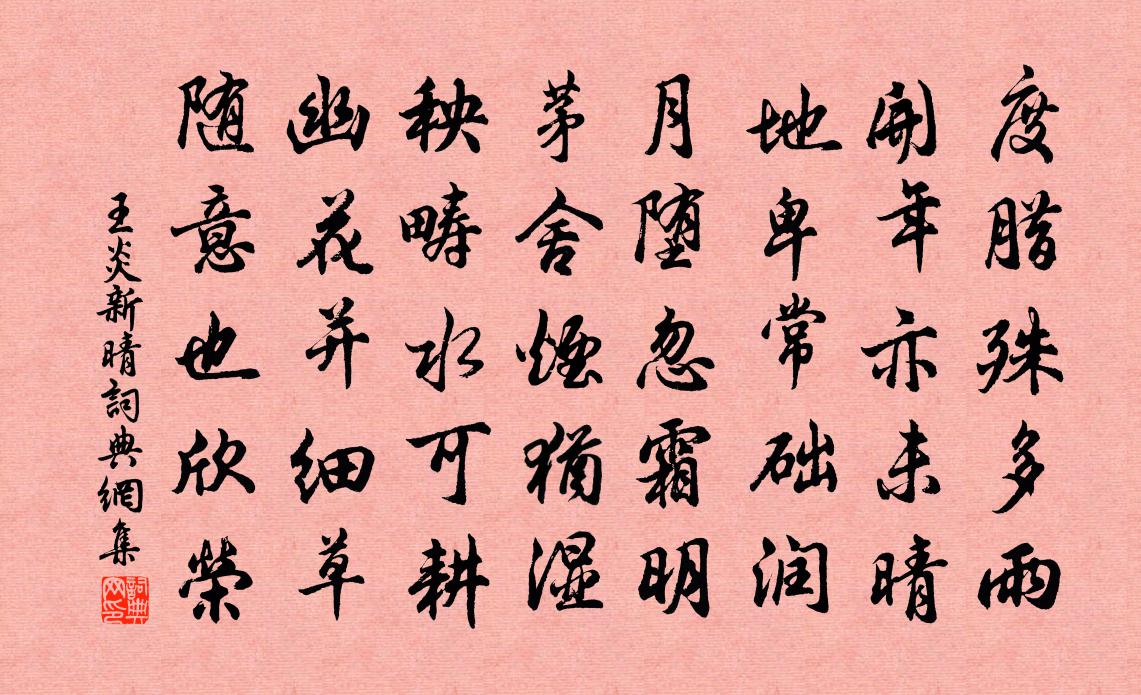 度腊殊多雨
開年亦未晴
地卑常础润
月堕忽霜明
茅舍煙猶湿
秧畴水可耕
幽花并细草
随意也欣榮
王炎新晴詞典網集
詞典网印